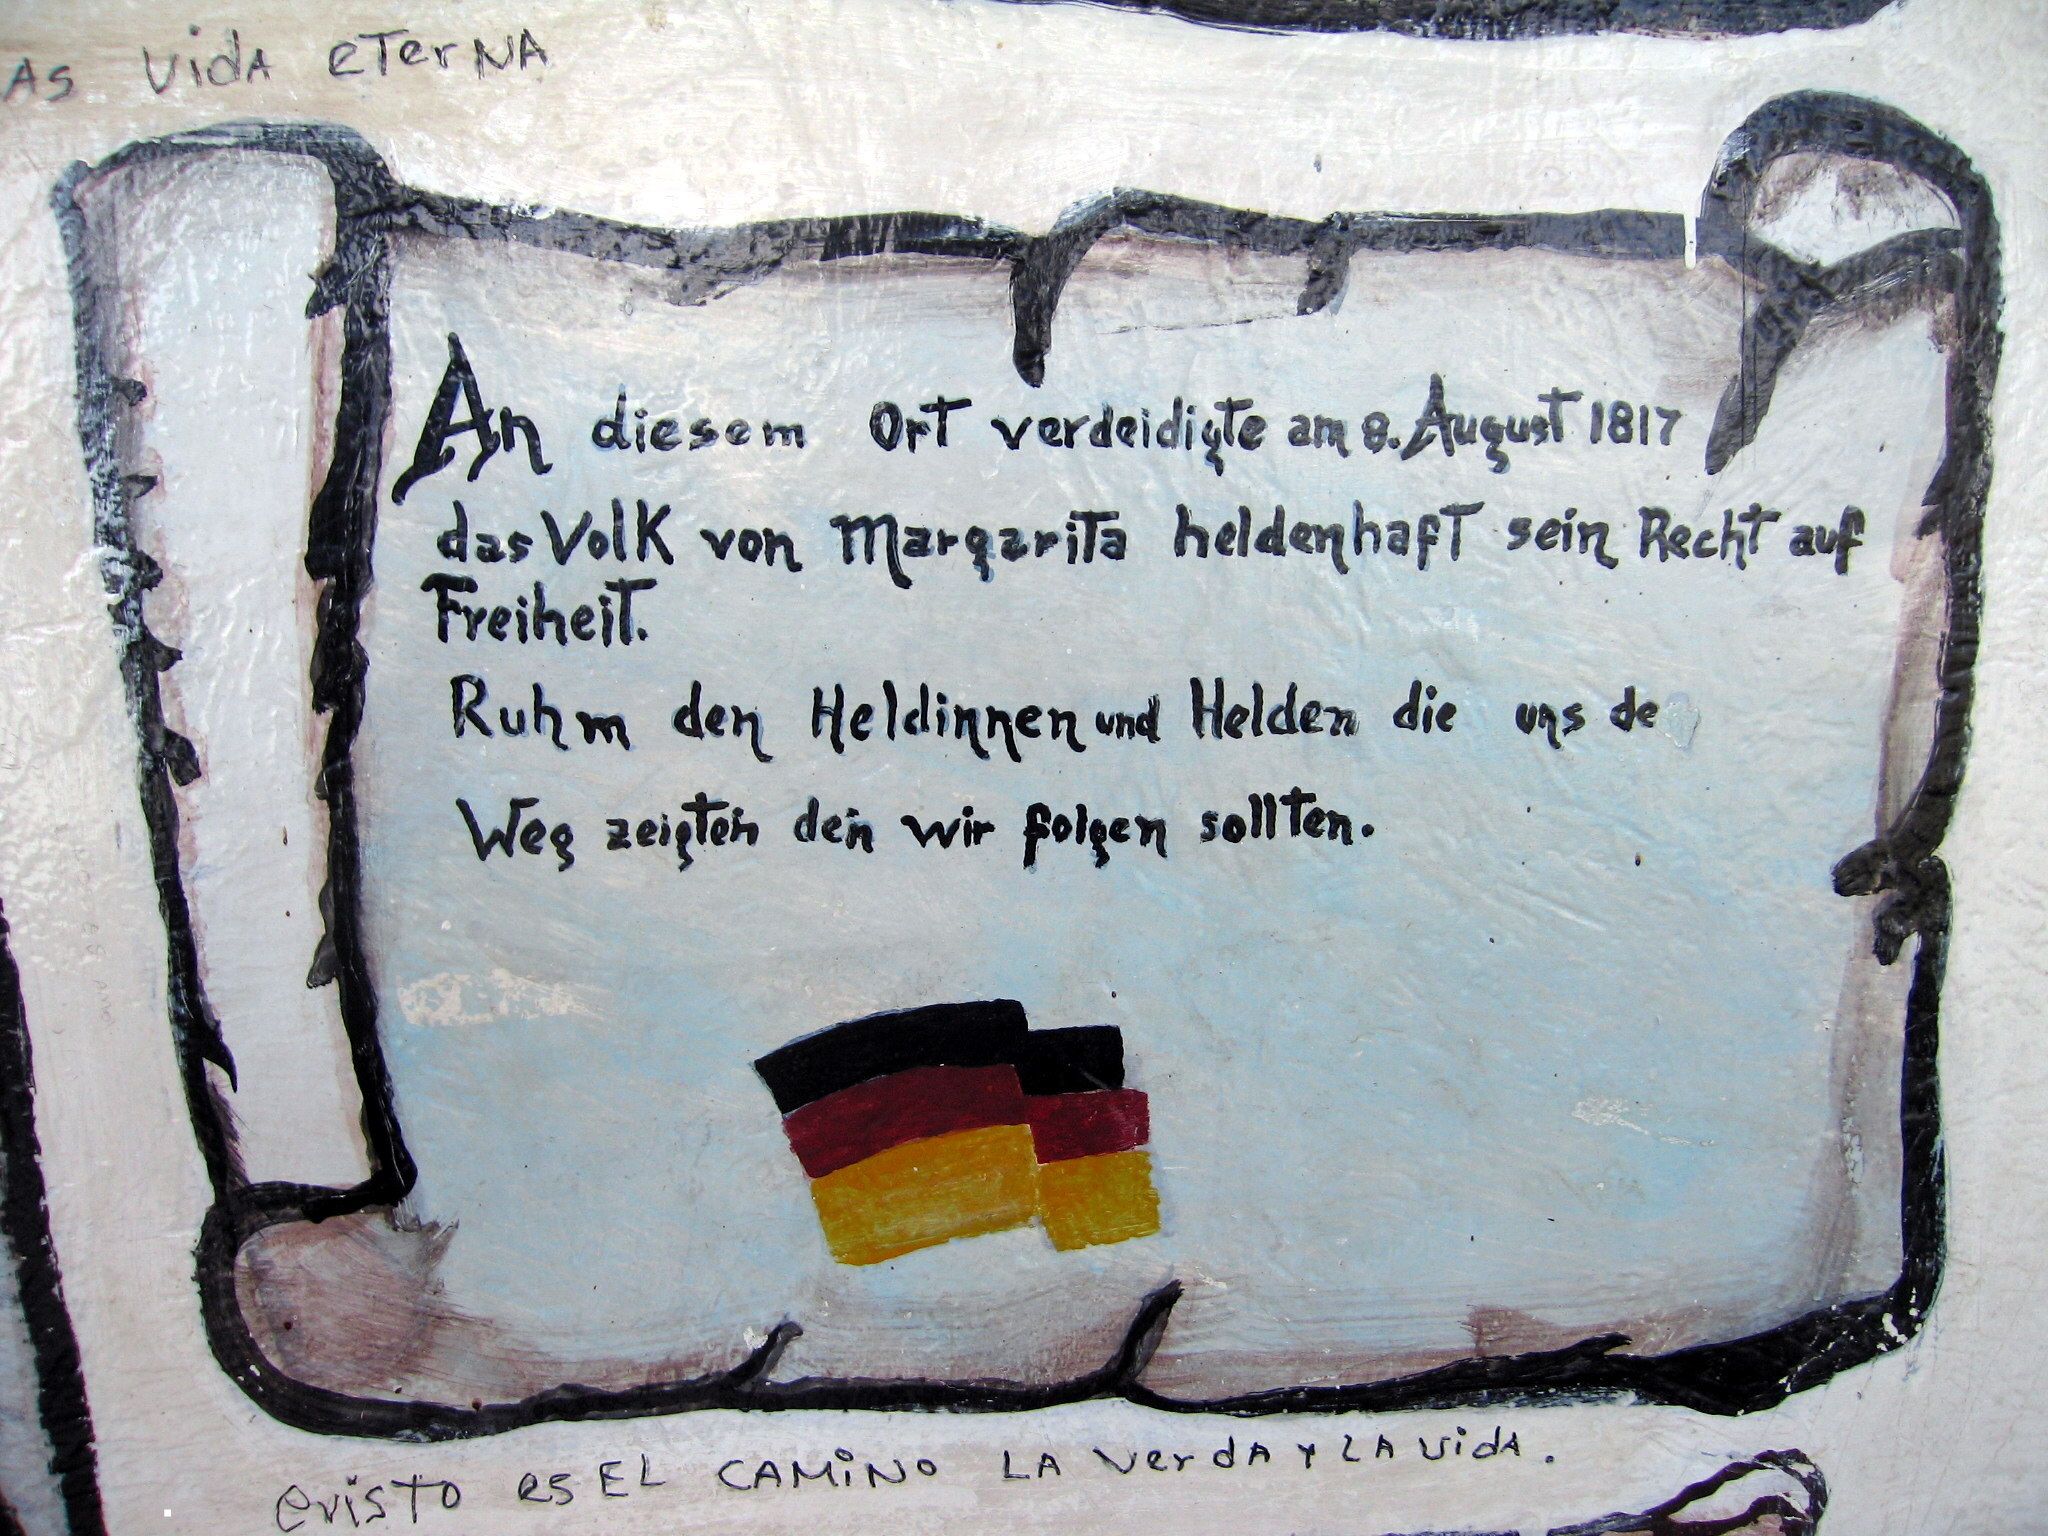 AS vida eTerNA
An diesem Ort verdeidigte am 8. August 1817
das Volk von Margarita heldenhaft sein Recht auf
Freiheit.
Ruhm den Heldinnen und Helden die uns de
Weg zeigten den wir folgen sollten.
cristo es EL CAMiNO LA verdA Y LA vidA.